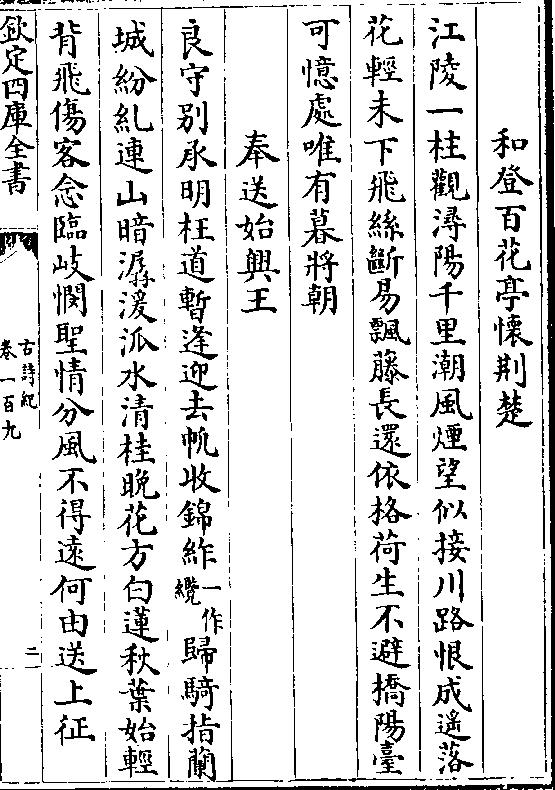 和登百花亭懷荆楚
江陵一柱觀潯陽千里潮風煙望似接川路恨成遥落
花輕未下飛絲斷易飄藤長還依格荷生不避橋陽臺
可憶處唯有暮將朝
奉送始興王
良守别承明枉道暫逢迎去帆收錦筰一作纜歸騎指蘭
城紛糺連山暗潺湲派水清桂晩花方白蓮秋葉始輕
背飛傷客念臨岐憫聖情分風不得遠何由送上征
欽定四庫全書
古詩紀
卷一百九
二